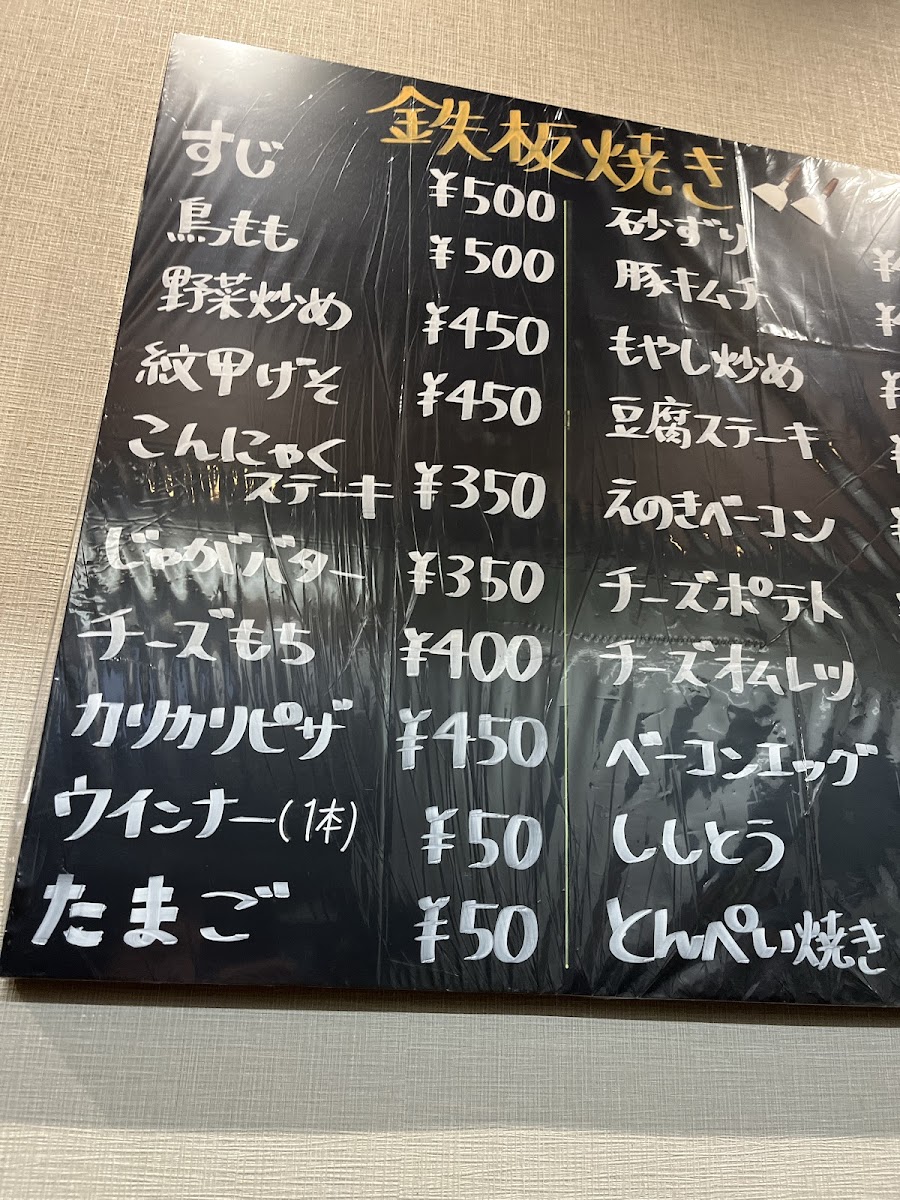 鉄板焼き
すじ ¥500
鳥もも ¥500
野菜炒め ¥450
紋甲げそ ¥450
こんにゃく
ステーキ ¥350
じゃがバター ¥350
チーズもち ¥400
カリカリピザ ¥450
ウインナー(1本) ¥50
たまご ¥50
砂ずり ¥
豚キムチ ¥
もやし炒め ¥
豆腐ステーキ ¥
えのきベーコン ¥
チーズポテト
チーズオムレツ
ベーコンエッグ
ししとう
とんぺい焼き